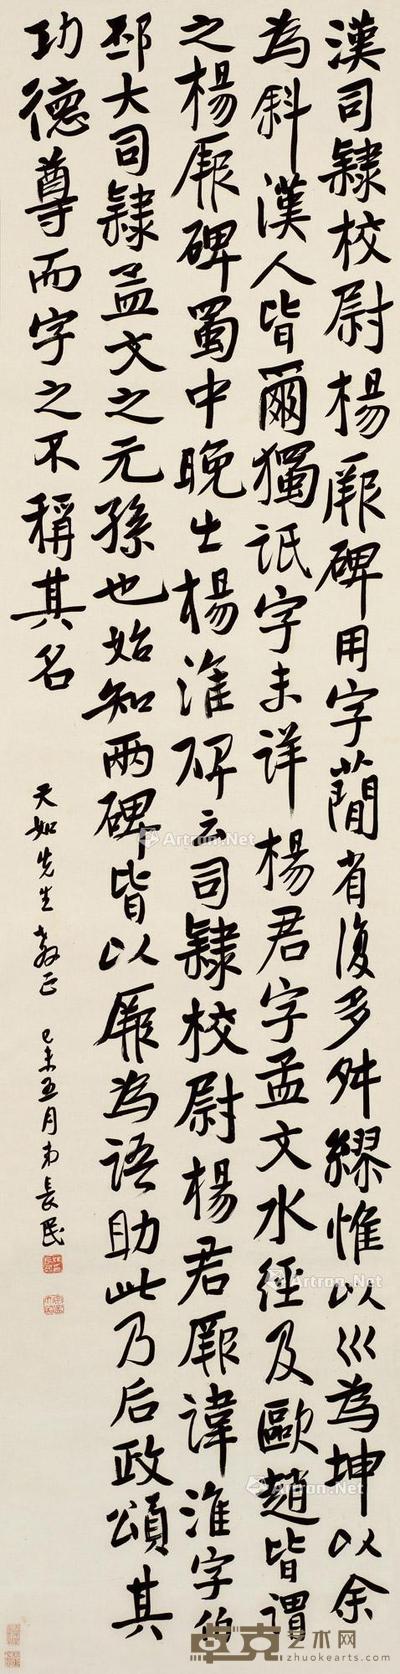 漢司隸校尉楊厥碑用字簡省復多舛繆惟以巛為坤以余
為斜漢人皆爾獨詆字未詳楊君字孟文水經及歐趙皆謂
之楊厥碑蜀中晚出楊淮碑云司隸校尉楊君厥諱淮字伯
邳大司隸孟文之元孫也始知兩碑皆以厥為語助此乃后政頌其
功德尊而字之不稱其名
天如先生教正 己未五月弟長民
Artron.Net
Artron.Net
Artron.Net
Artron.Net
卓克艺术网
zhuokearts.com